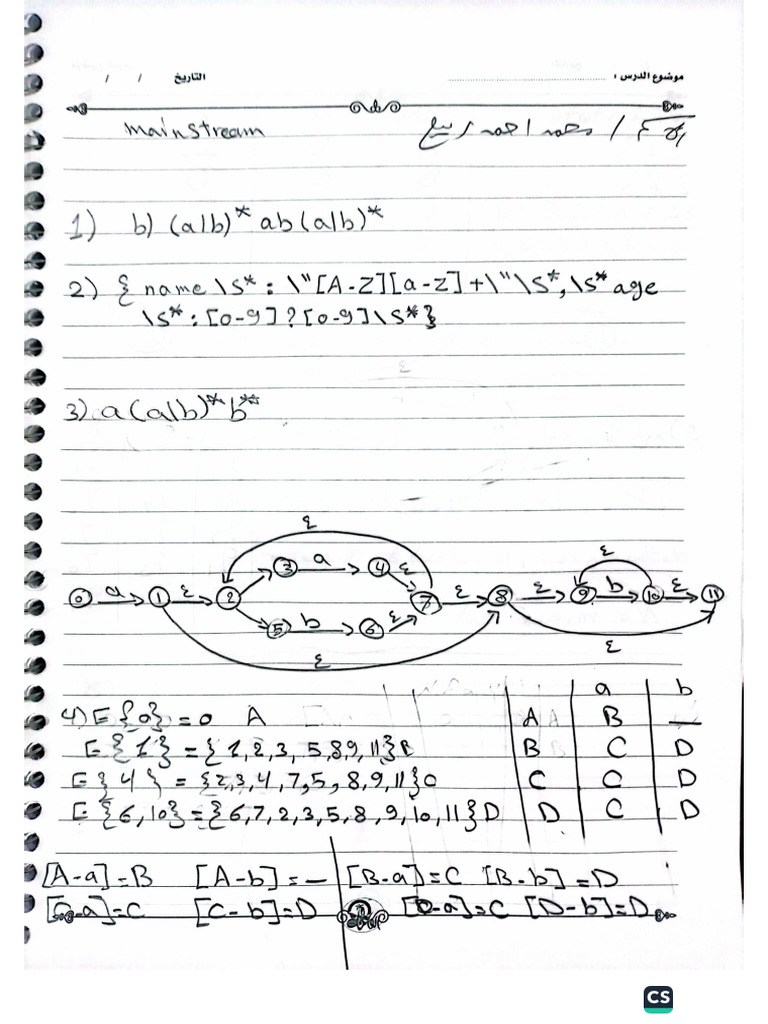 موضوع الدرس : التاريخ / /
mainstream / محمد احمد ربيع
1) b) (a|b)* ab(a|b)*
2) { name \s* : \"[A-Z][a-z]+\"\s*,\s* age
\s* : [0-9]?[0-9]\s*}
3) a(a|b)*b*
ε
ε
0 a 1 ε 2 3 a 4 ε 7 ε 8 ε 9 b 10 ε 11
5 b 6 ε
ε
ε
a b
4) E{0} = 0 A A B —
E{1} = {1,2,3, 5,8,9, 11}B B C D
E{4} = {2,3,4,7,5, 8,9,11}C C C D
E{6,10} = {6,7,2,3,5,8,9,10,11}D D C D
[A-a]=B [A-b]=— [B-a]=C [B-b]=D
[C-a]=C [C-b]=D [D-a]=C [D-b]=D
CS